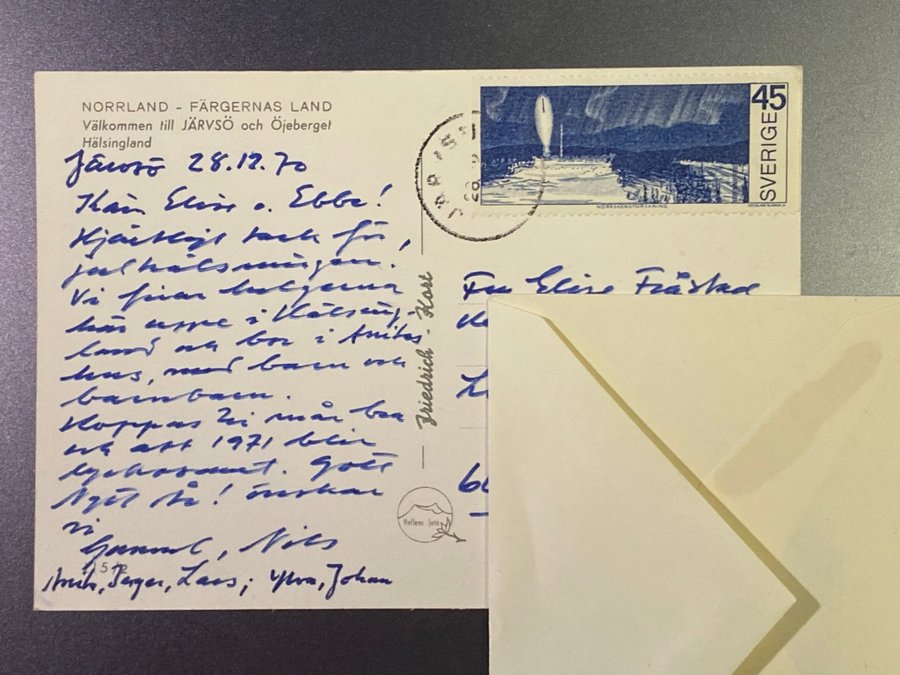 NORRLAND - FÄRGERNAS LAND
Välkommen till JÄRVSÖ och Öjeberget
Hälsingland
Järvsö 28.12.70
Kära Elise o. Ebbe!
Hjärtligt tack för
julhälsningen.
Vi firar helgerna
här uppe i Hälsing-
land och bor i Anitas
hus, med barn och
barnbarn.
Hoppas Ni mår bra
och att 1971 blir
lyckosamt. Gott
Nytt År! önskar
vi
Gunvel, Nils
Anita, Birger, Lars, Ylva, Johan
Friedrich - Kort
Hallens foto
JÄRVSÖ
28
45
SVERIGE
NORRSKENSFORSKNING
Fru Elise Fråstad